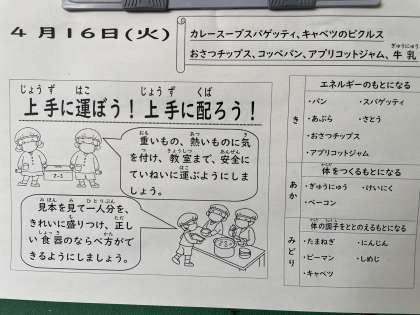 4月16日(火)
カレースープスパゲッティ、キャベツのピクルス
おさつチップス、コッペパン、アプリコットジャム、牛乳
ぎゅうにゅう
じょうず はこ じょうず くば
上手に運ぼう！上手に配ろう！
2-1
おも あつ き
重いもの、熱いものに気
つ きょうしつ あんぜん
を付け、教室まで、安全に
はこ
ていねいに運ぶようにしま
しょう。
みほん み ひとりぶん
見本を見て一人分を、
も ただ
きれいに盛りつけ、正し
しょっき かた
い食器のならべ方がで
きるようにしましょう。
エネルギーのもとになる
き
・パン ・スパゲッティ
・あぶら ・さとう
・おさつチップス
・アプリコットジャム
からだ
体をつくるもとになる
あか
・ぎゅうにゅう ・けいにく
・ベーコン
からだ ちょうし
体の調子をととのえるもとになる
みどり
・たまねぎ ・にんじん
・ピーマン ・しめじ
・キャベツ